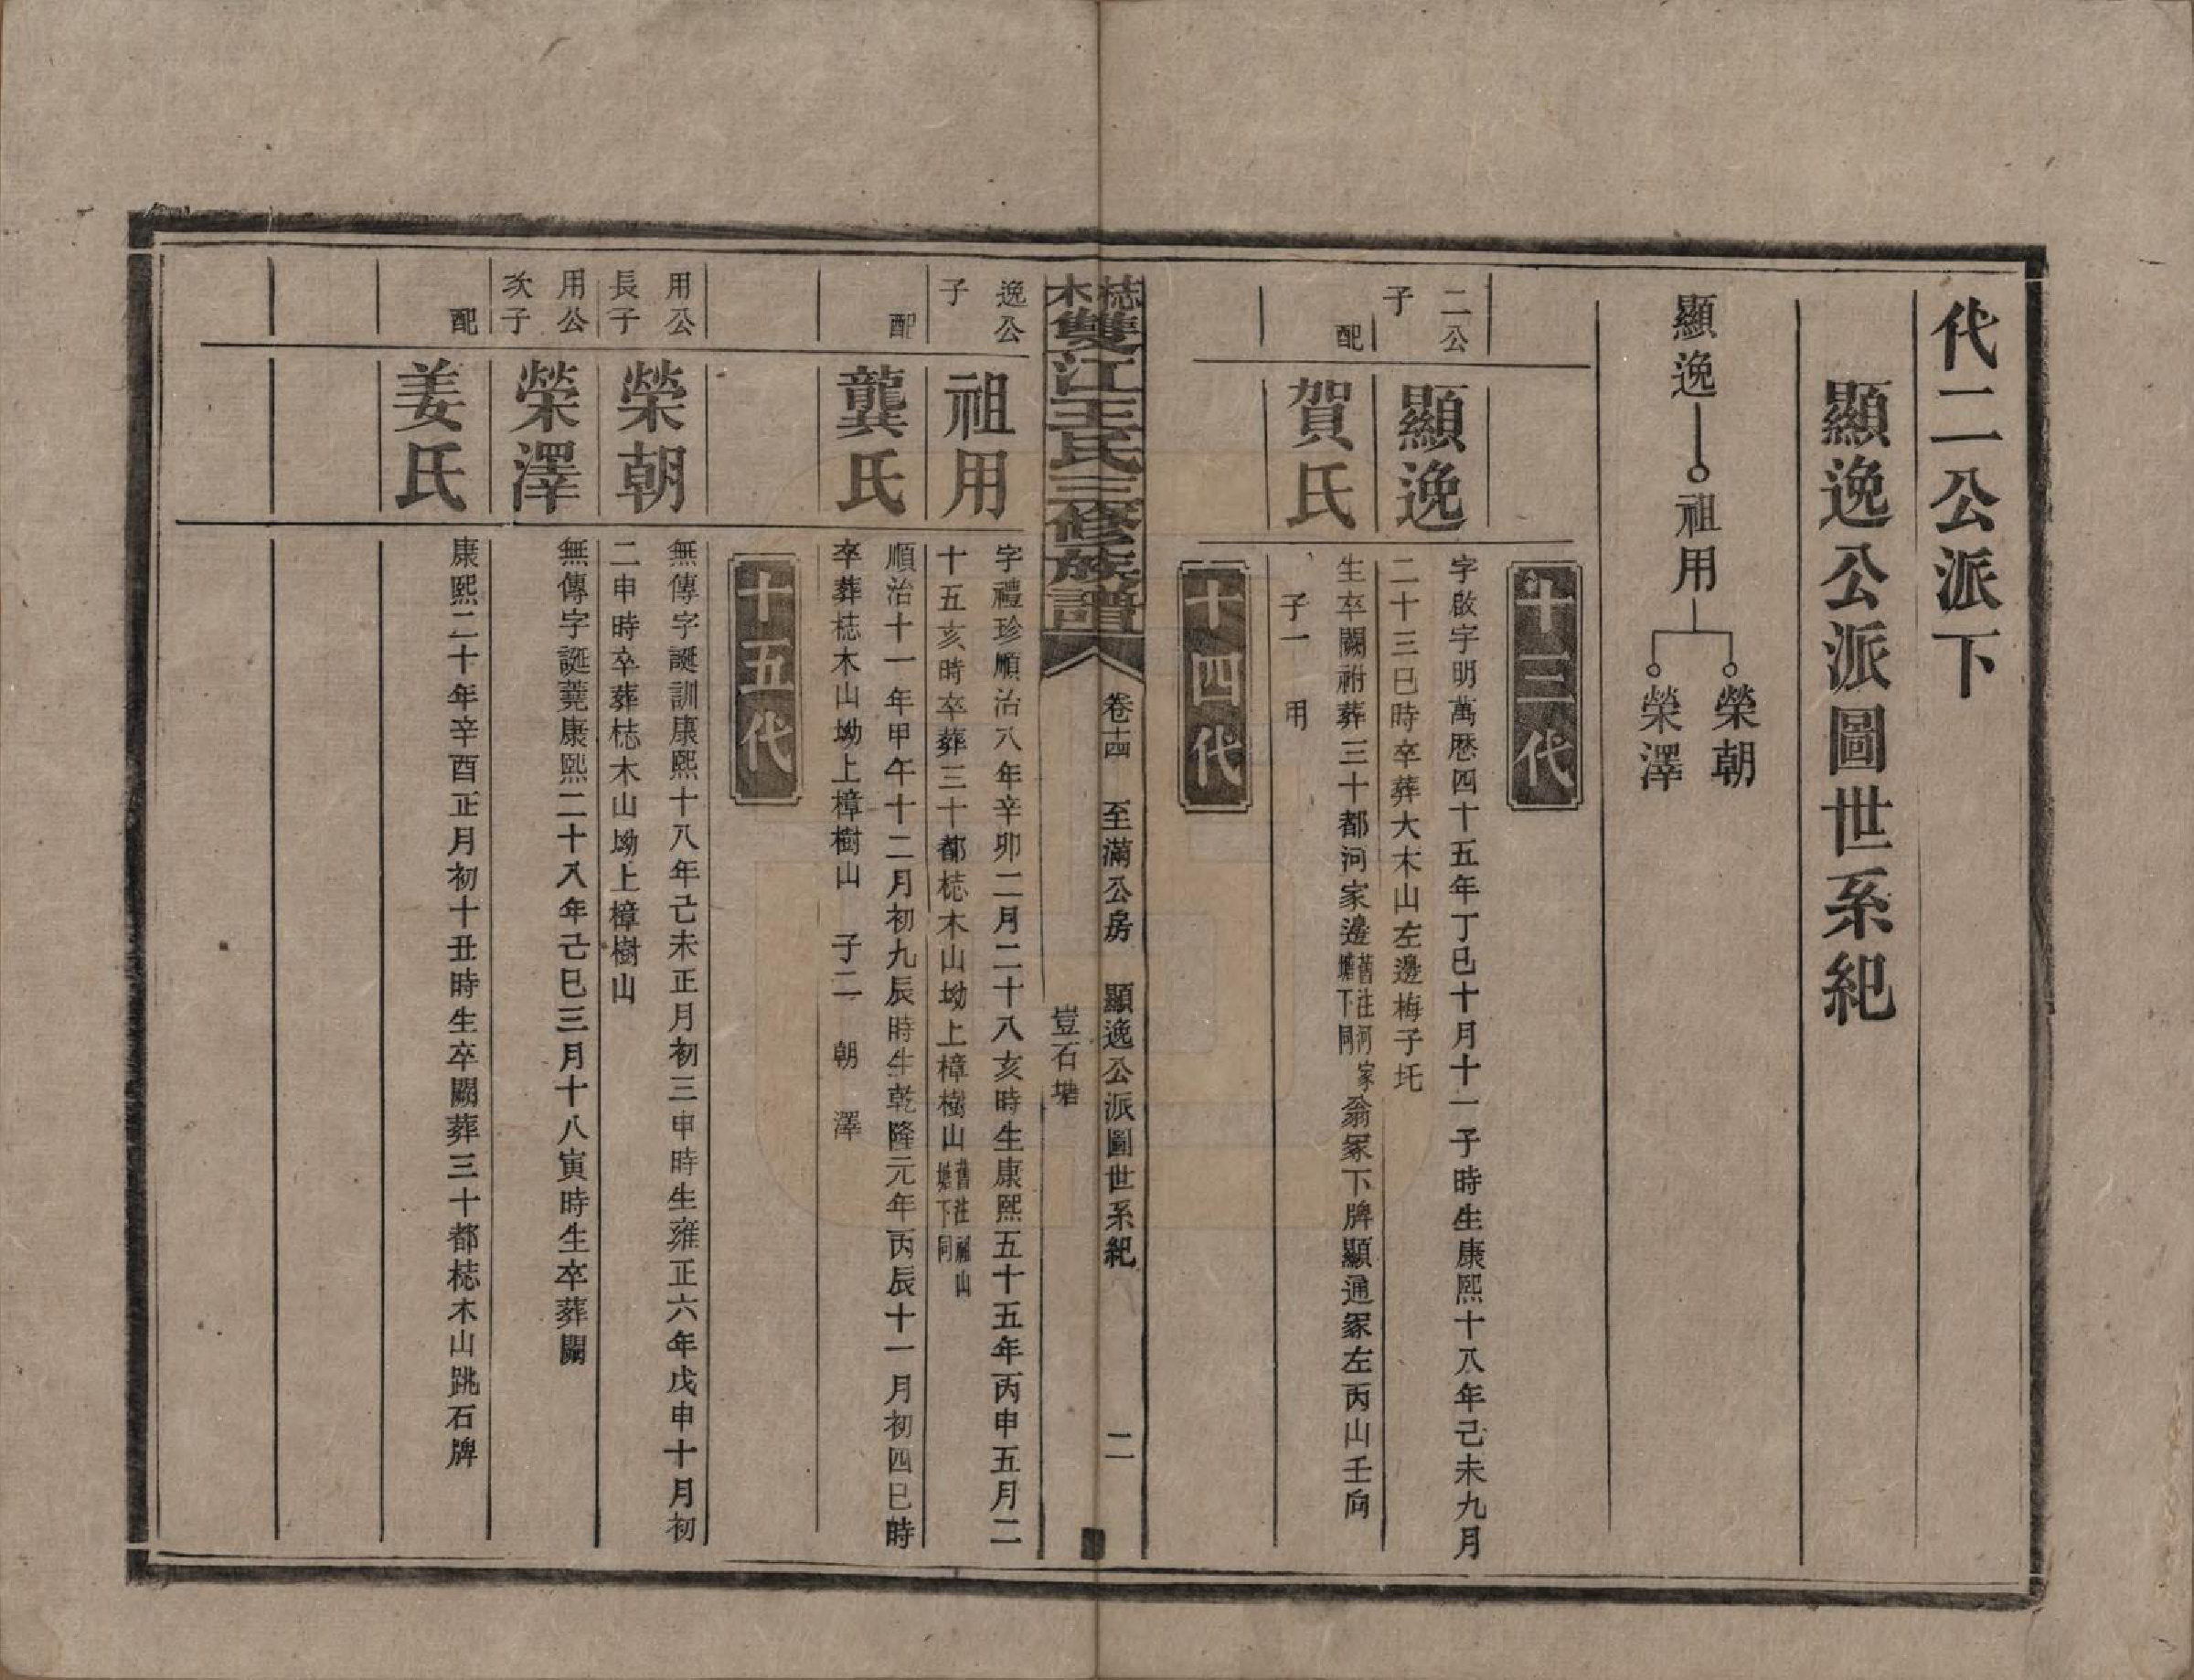 代二公派下
顯逸公派圖世系紀
顯逸 祖用 榮朝
榮澤
十三代
二公
子
顯逸
字啟字明萬歷四十五年丁巳十月十一子時生康熙十八年己未九月
二十三巳時卒葬大木山左邊梅子圫
配
賀氏
生卒闕祔葬三十都河家邊舊注河家塘下同翁冢下牌顯通冢左丙山壬向
子一 用
十四代
梽木雙江王氏三修族譜
卷十四 至滿公房 顯逸公派圖世系紀 二
豈石塘
逸公
子
祖用
字禮珍順治八年辛卯二月二十八亥時生康熙五十五年丙申五月二
十五亥時卒葬三十都梽木山坳上樟樹山舊注祖山塘下同
配
龔氏
順治十一年甲午十二月初九辰時生乾隆元年丙辰十一月初四巳時
卒葬梽木山坳上樟樹山 子二 朝 澤
十五代
用公
長子
榮朝
無傳字誕訓康熙十八年己未正月初三申時生雍正六年戊申十月初
二申時卒葬梽木山坳上樟樹山
用公
次子
榮澤
無傳字誕蕘康熙二十八年己巳三月十八寅時生卒葬闕
配
姜氏
康熙二十年辛酉正月初十丑時生卒闕葬三十都梽木山跳石牌